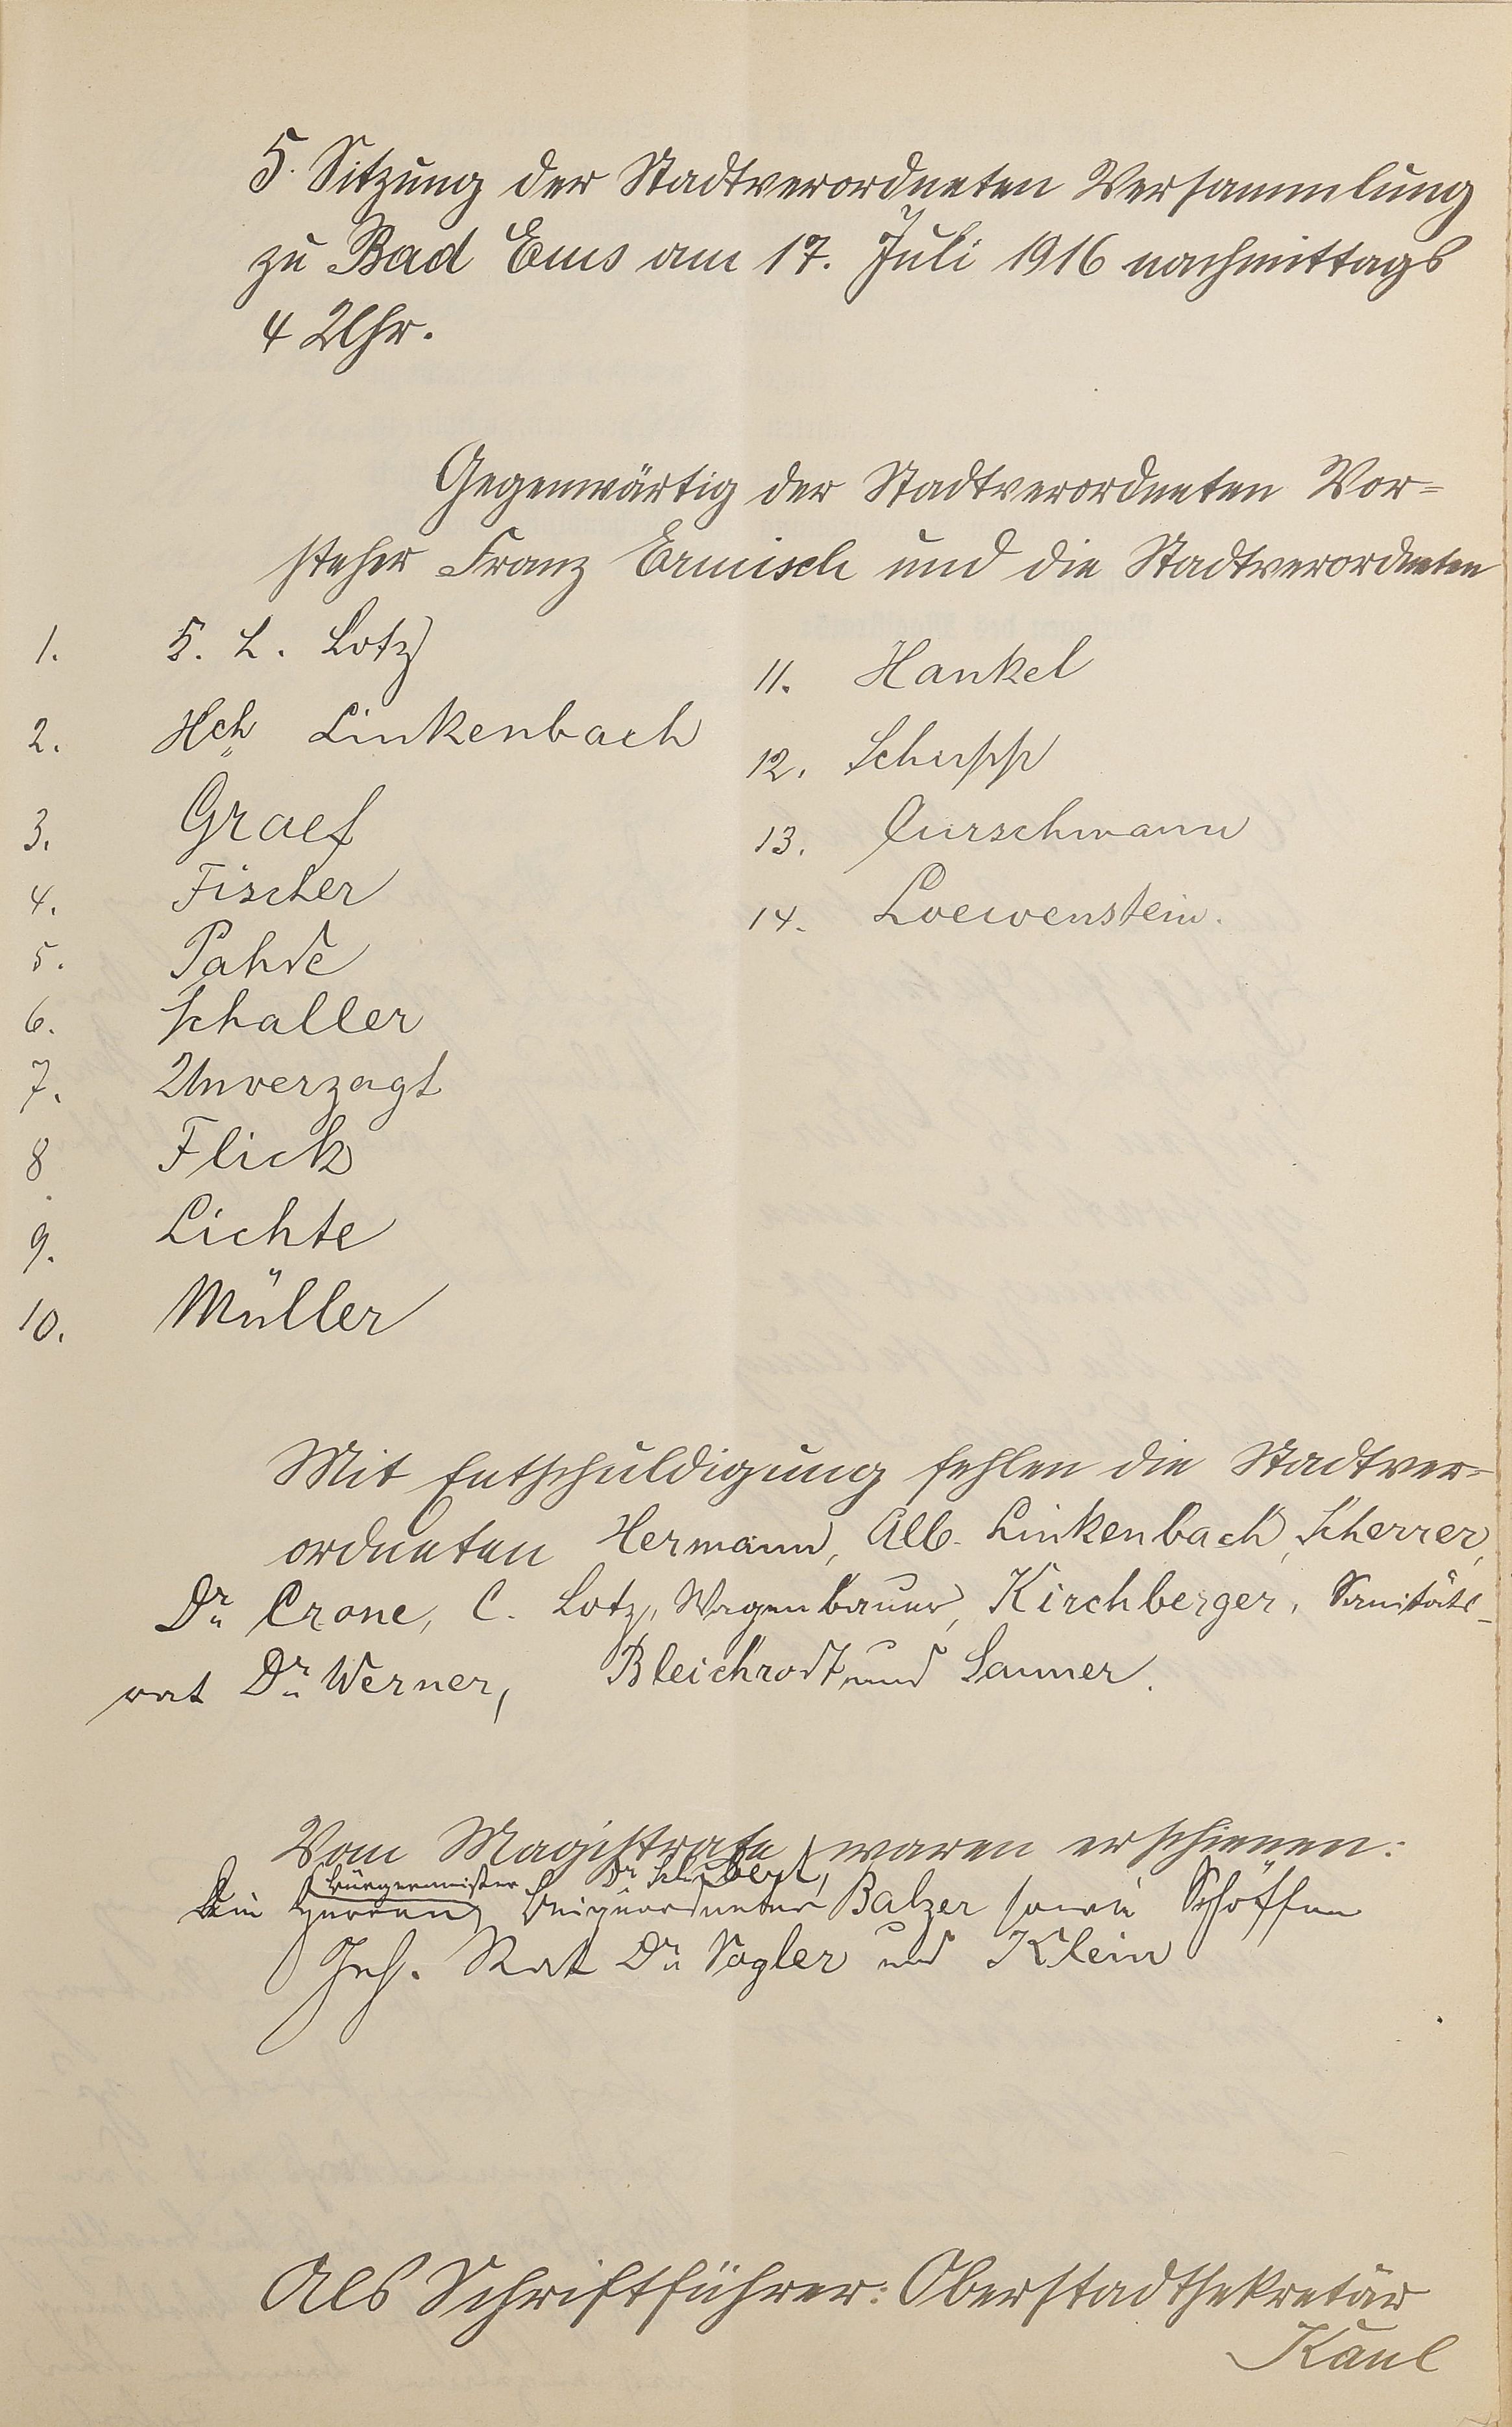 5. Sitzung der Stadtverordneten Versammlung
zu Bad Ems am 17. Juli 1916 nachmittags
4 Uhr.
Gegenwärtig der Stadtverordneten Vor=
steher Franz Ermisch und die Stadtverordneten
1. F. L. Lotz
2. Hch Linkenbach
3. Graef
4. Fischer
5. Pahde
6. Schaller
7. Unverzagt
8. Flick
9. Lichte
10. Müller
11. Hankel
12. Schupp
13. Curschmann
14. Loewenstein.
Mit Entschuldigung fehlen die Stadtver=
ordneten Hermann, Alb. Linkenbach, Scherrer,
Dr Crone, C. Lotz, Wagenbauer, Kirchberger, Sanitäts-
rat Dr Werner, Bleichrodt und Sauner.
Vom Magistrate waren erschienen:
Bürgermeister Dr Schubert,
Die Herren Beigeordneter Balzer sowie Schöffen
Geh. Rat Dr Vogler und Klein
Als Schriftführer: Oberstadtsekretär
Kaul